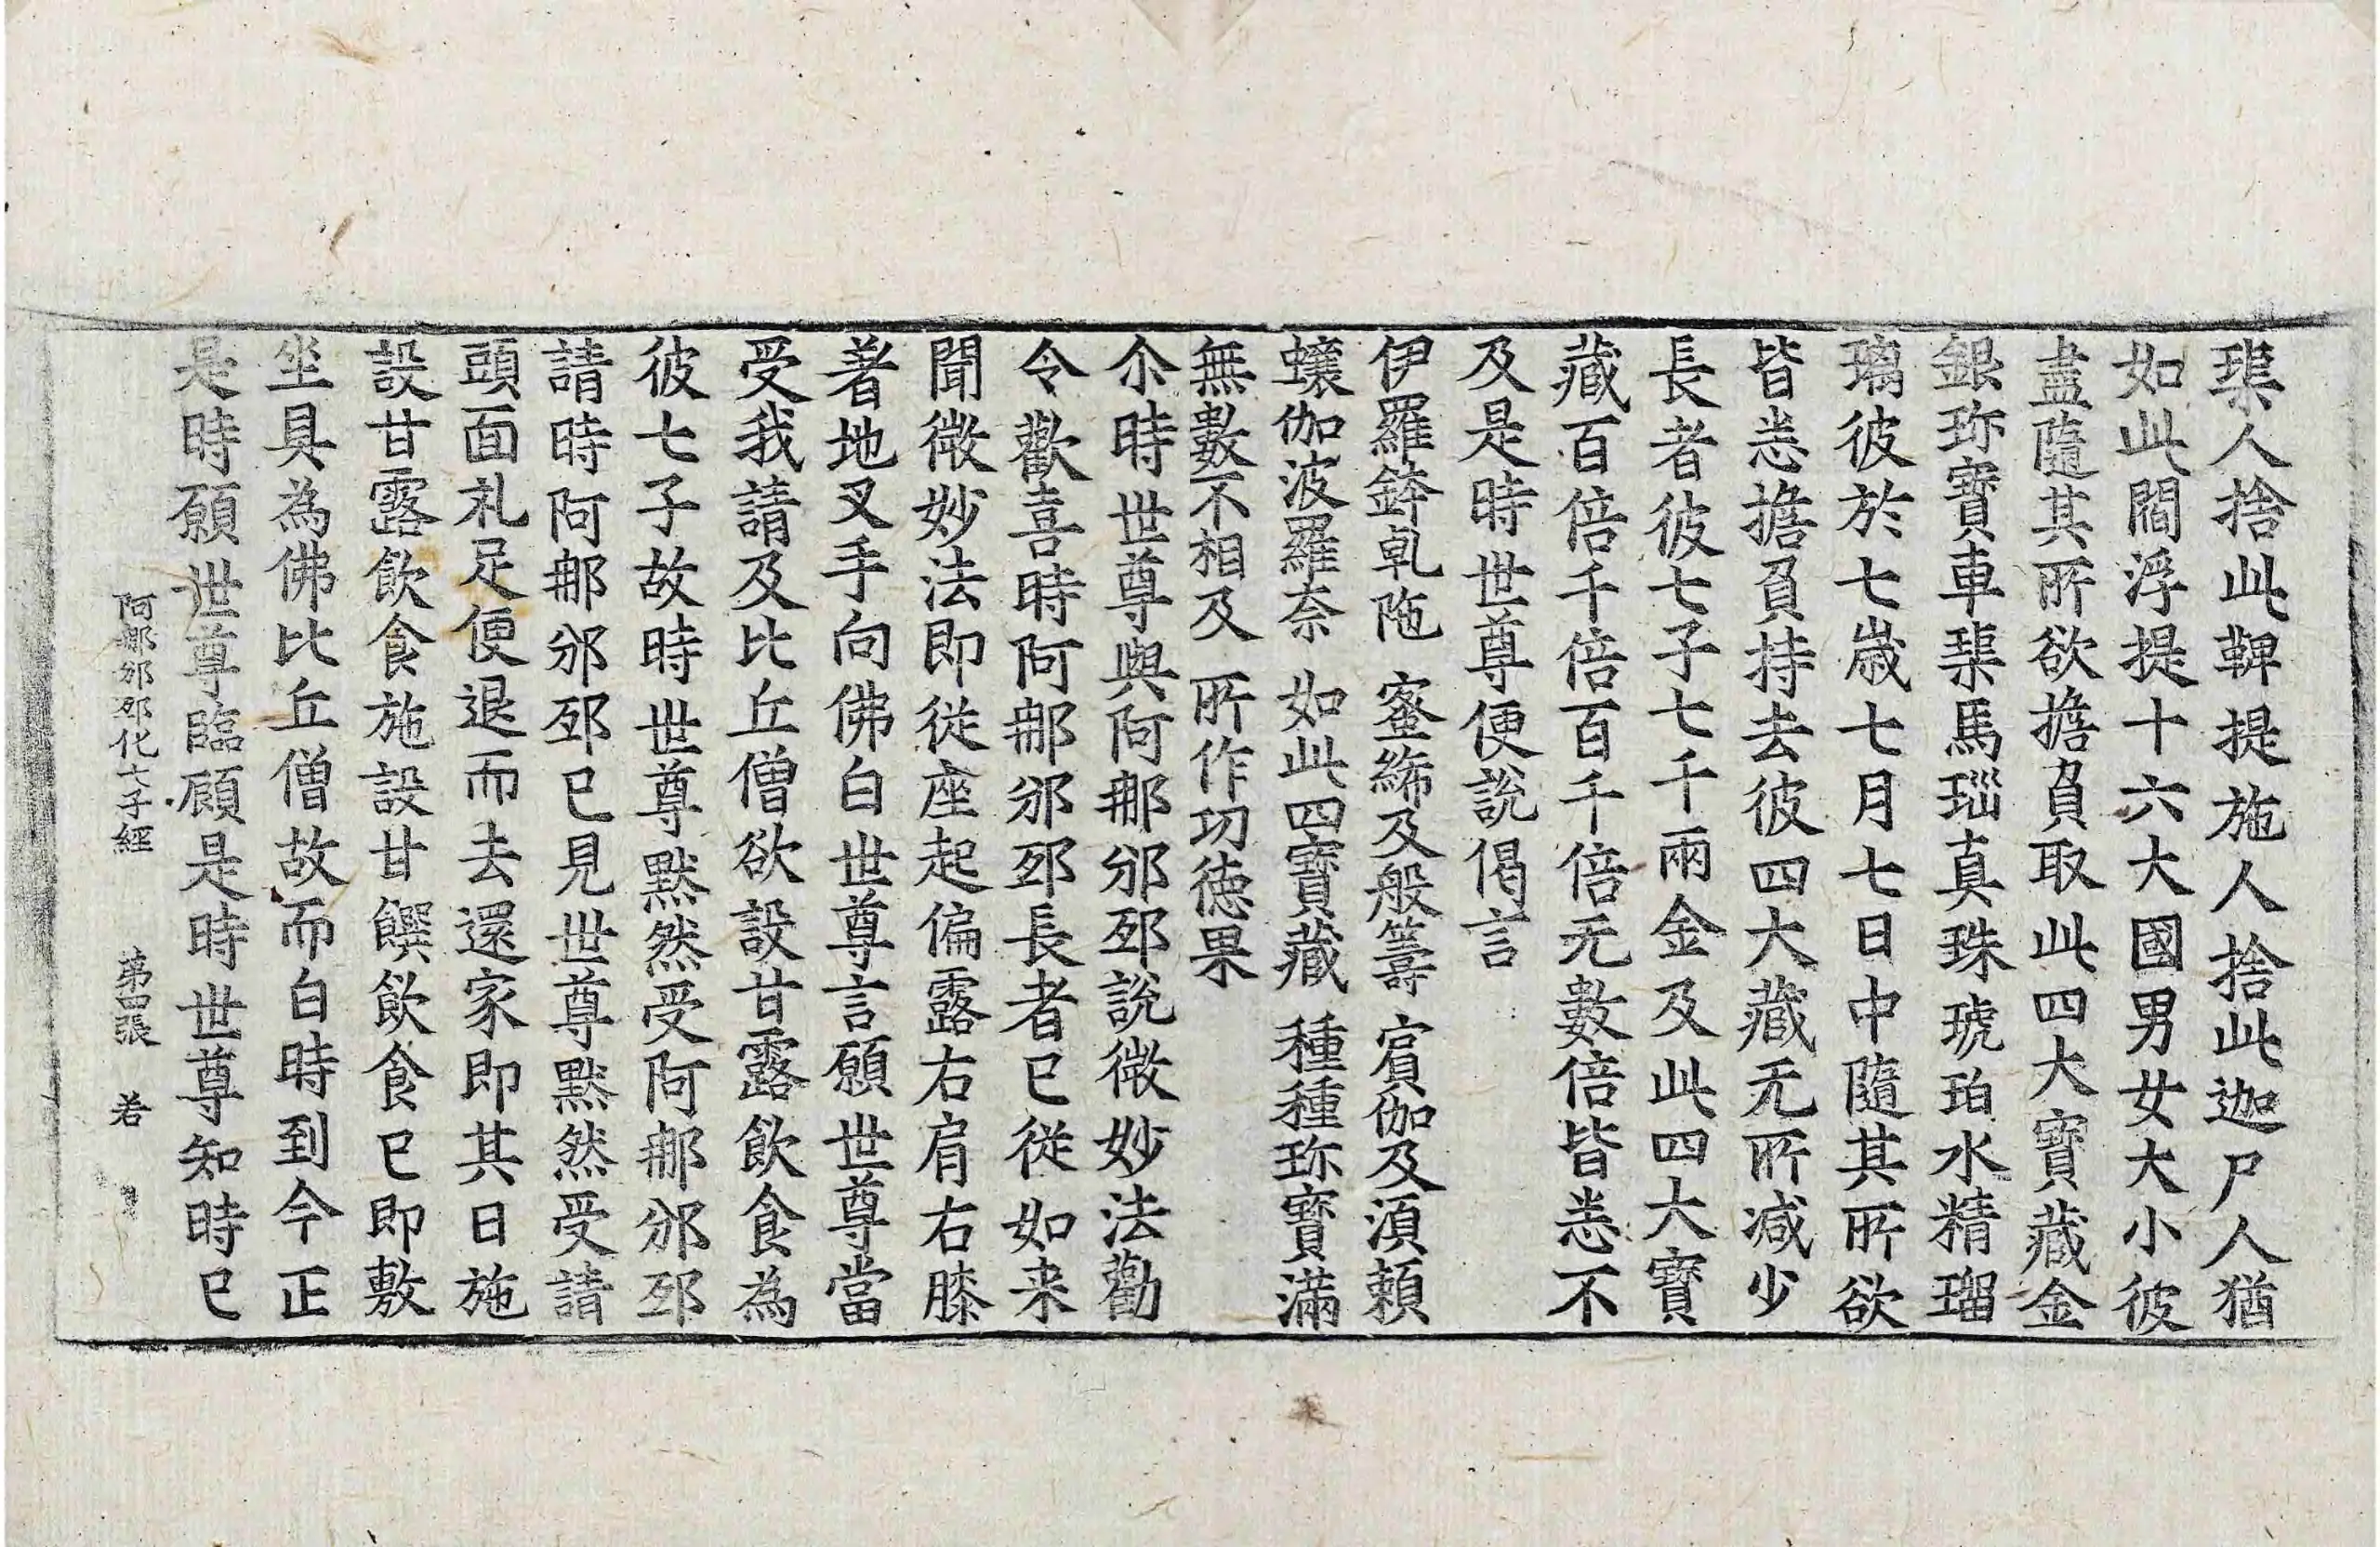 渠人捨此鞞提施人捨此迦尸人猶
如此閻浮提十六大國男女大小彼
盡隨其所欲擔負取此四大寶藏金
銀珎寶車𤦲馬瑙真珠琥珀水精瑠
璃彼於七歲七月七日中隨其所欲
皆悉擔負持去彼四大藏无所减少
長者彼七子七千兩金及此四大寶
藏百倍千倍百千倍无數倍皆悉不
及是時世尊便說偈言
伊羅鉢乹陁　蜜絺及般籌　賓伽及湏賴
蠰伽波羅奈　如此四寶藏　種種珎寶滿
無數不相及　所作功德果
尒時世尊與阿𨚗邠邳說微妙法勸
令歡喜時阿𨚗邠邳長者已從如来
聞微妙法即從座起偏露右肩右膝
著地叉手向佛白世尊言願世尊當
受我請及比丘僧欲設甘露飲食為
彼七子故時世尊默然受阿𨚗邠邳
請時阿𨚗邠邳已見世尊默然受請
頭面礼足便退而去還家即其日施
設甘露飲食施設甘饌飲食已即敷
坐具為佛比丘僧故而白時到今正
是時願世尊臨顧是時世尊知時已
阿𨚗邠邳化七子經　第四張　若